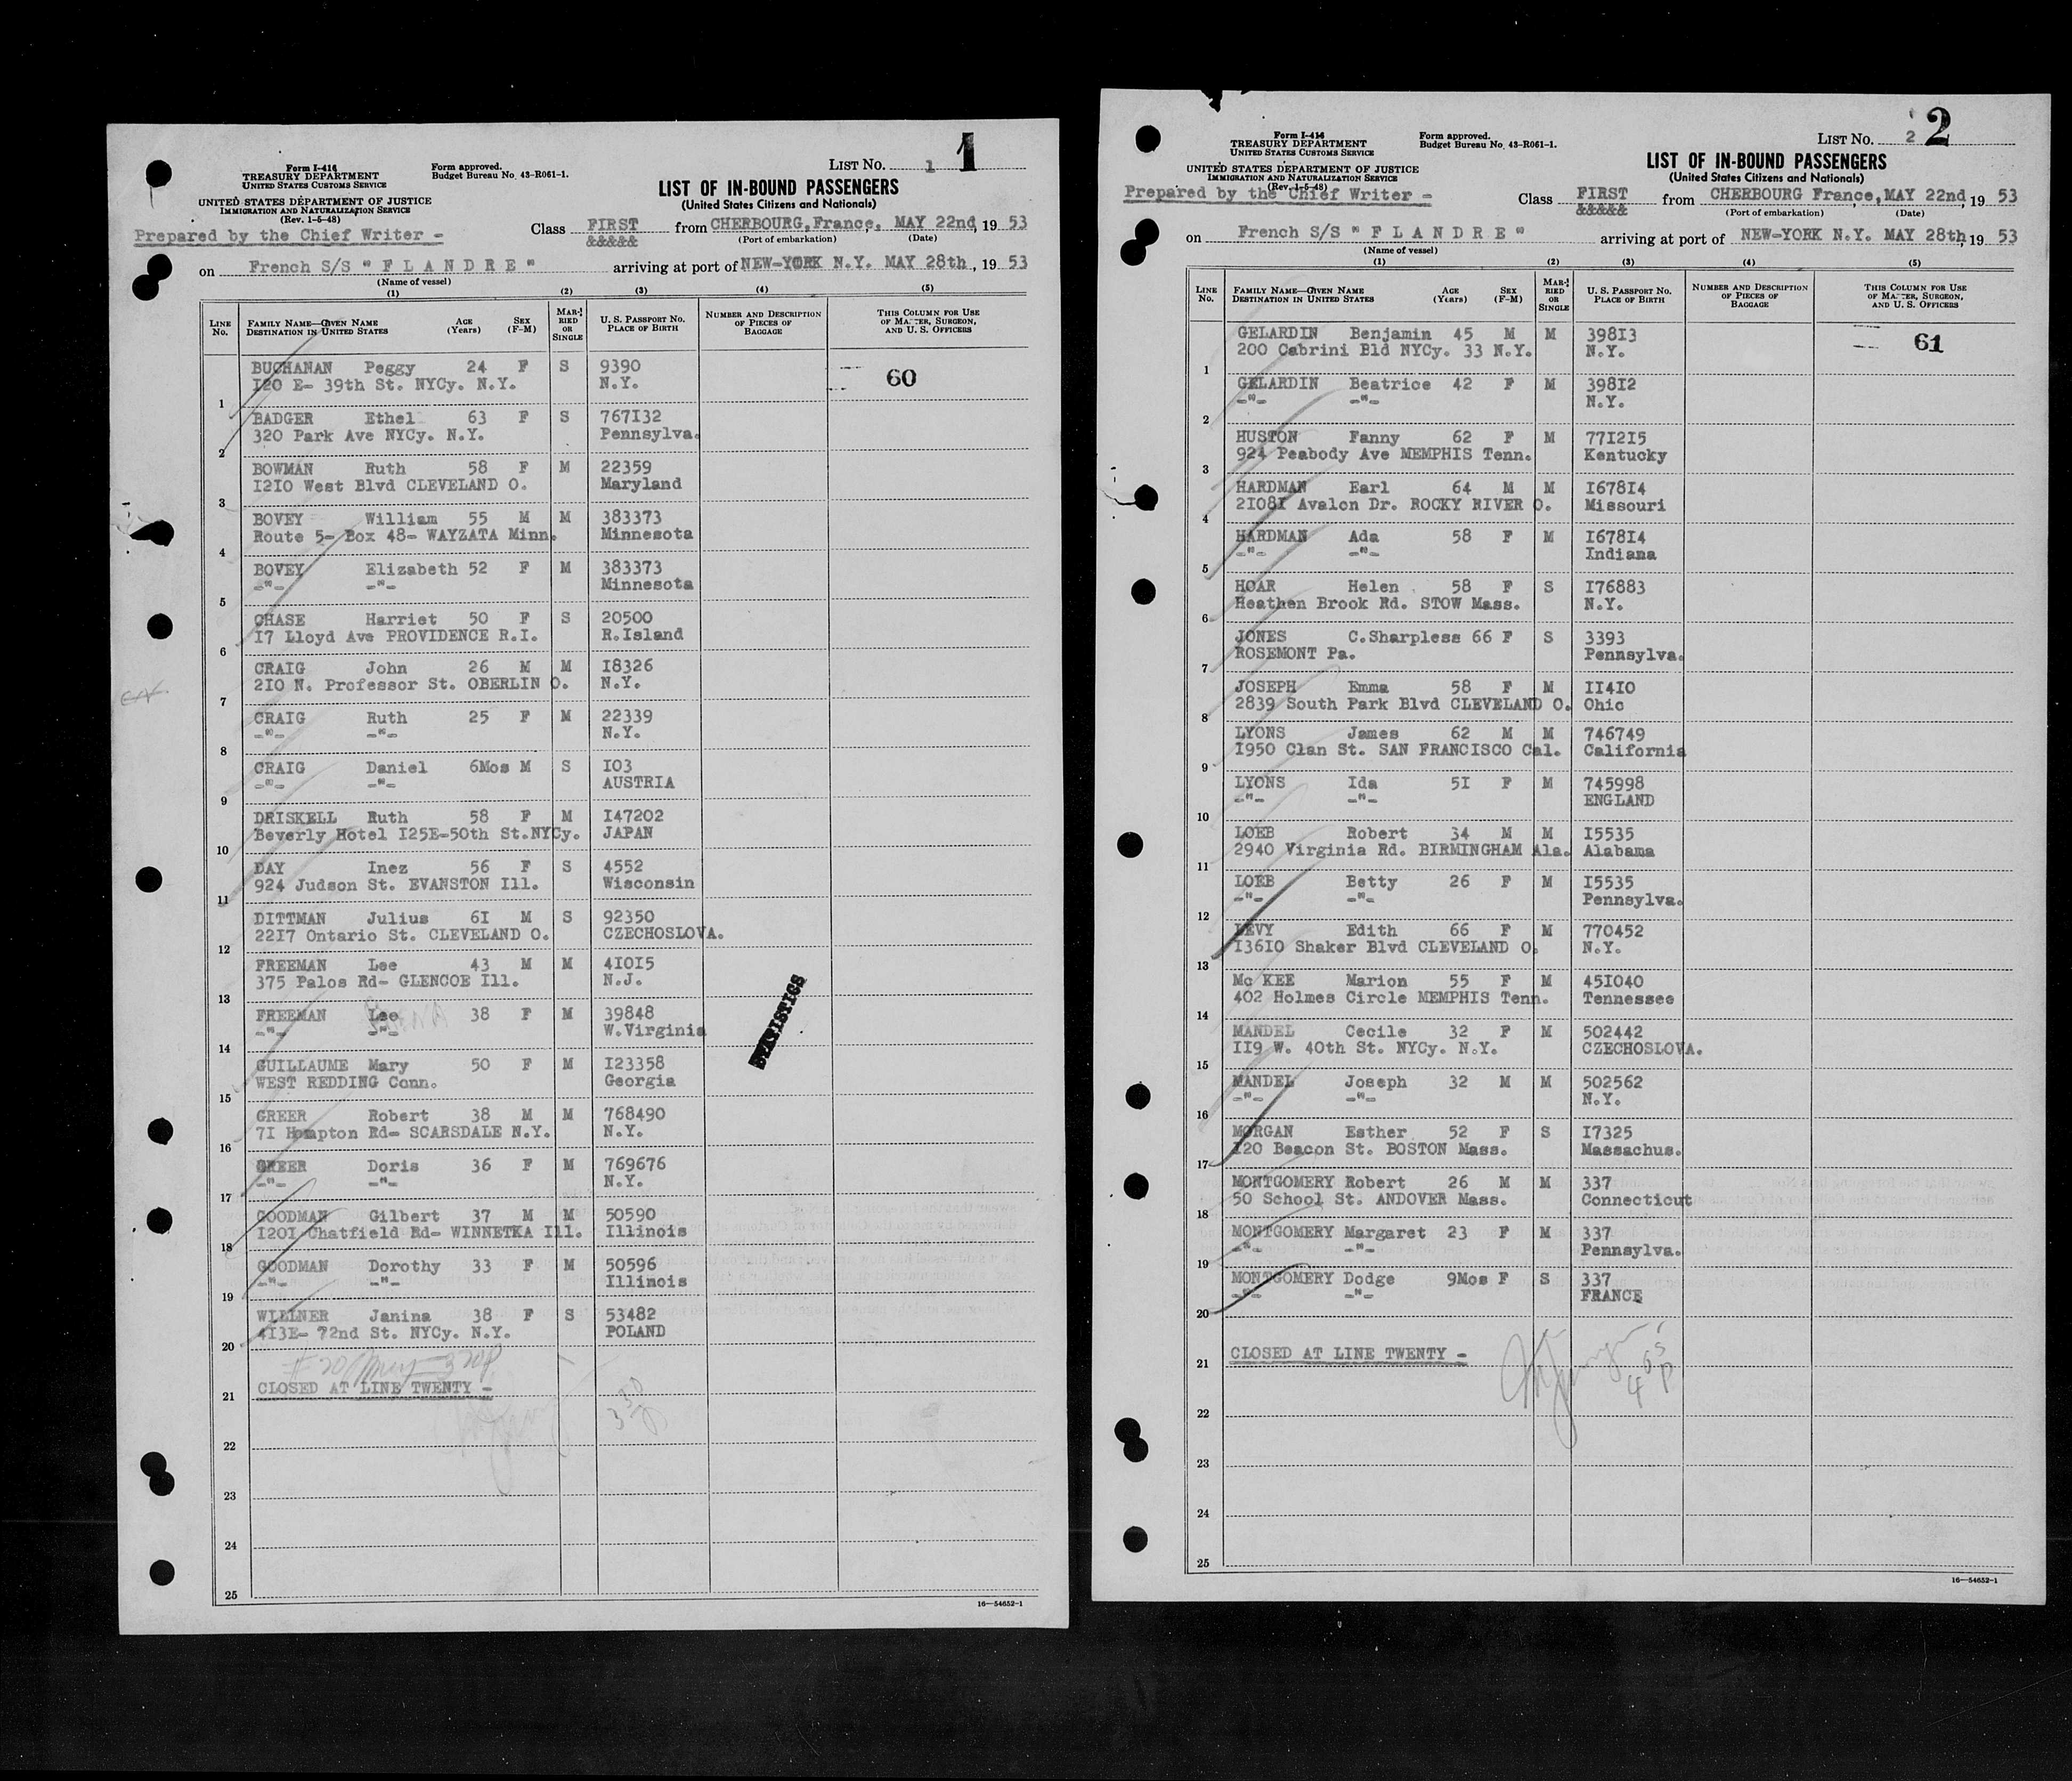 Form I-416
TREASURY DEPARTMENT
UNITED STATES CUSTOMS SERVICE
UNITED STATES DEPARTMENT OF JUSTICE
IMMIGRATION AND NATURALIZATION SERVICE
(Rev. 1-5-48)
Form approved.
Budget Bureau No. 43-R061-1.
LIST No. 1 1
LIST OF IN-BOUND PASSENGERS
(United States Citizens and Nationals)
Prepared by the Chief Writer -
Class FIRST from CHERBOURG, France, MAY 22nd, 19 53
&&&&& (Port of embarkation) (Date)
on French S/S " F L A N D R E " arriving at port of NEW-YORK N.Y. MAY 28th, 19 53
(Name of vessel)
(1) (2) (3) (4) (5)
LINE No. FAMILY NAME—GIVEN NAME DESTINATION IN UNITED STATES AGE (Years) SEX (F-M) MARRIED OR SINGLE U. S. PASSPORT NO. PLACE OF BIRTH NUMBER AND DESCRIPTION OF PIECES OF BAGGAGE THIS COLUMN FOR USE OF MASTER, SURGEON, AND U. S. OFFICERS
BUCHANAN Peggy 24 F S 9390 60
1 I20 E- 39th St. NYCy. N.Y. N.Y.
BADGER Ethel 63 F S 767I32
2 320 Park Ave NYCy. N.Y. Pennsylva.
BOWMAN Ruth 58 F M 22359
3 I2I0 West Blvd CLEVELAND O. Maryland
BOVEY William 55 M M 383373
4 Route 5- Box 48- WAYZATA Minn. Minnesota
BOVEY Elizabeth 52 F M 383373
5 -"- -"- Minnesota
CHASE Harriet 50 F S 20500
6 I7 Lloyd Ave PROVIDENCE R.I. R.Island
CRAIG John 26 M M I8326
7 2I0 N. Professor St. OBERLIN O. N.Y.
CRAIG Ruth 25 F M 22339
8 -"- -"- N.Y.
CRAIG Daniel 6Mos M S I03
9 -"- -"- AUSTRIA
DRISKELL Ruth 58 F M I47202
10 Beverly Hotel I25E-50th St.NYCy. JAPAN
DAY Inez 56 F S 4552
11 924 Judson St. EVANSTON Ill. Wisconsin
DITTMAN Julius 6I M S 92350
12 22I7 Ontario St. CLEVELAND O. CZECHOSLOVA.
FREEMAN Lee 43 M M 4I0I5
13 375 Palos Rd- GLENCOE Ill. N.J.
FREEMAN Lee 38 F M 39848
14 -"- -"- W.Virginia
STATISTICS
GUILLAUME Mary 50 F M I23358
15 WEST REDDING Conn. Georgia
GREER Robert 38 M M 768490
16 7I Hampton Rd- SCARSDALE N.Y. N.Y.
GREER Doris 36 F M 769676
17 -"- -"- N.Y.
GOODMAN Gilbert 37 M M 50590
18 I20I-Chatfield Rd- WINNETKA Ill. Illinois
GOODMAN Dorothy 33 F M 50596
19 -"- -"- Illinois
WILLNER Janina 38 F S 53482
20 4I3E- 72nd St. NYCy. N.Y. POLAND
21 CLOSED AT LINE TWENTY -
22
23
24
25
16—54652-1
Form I-416
TREASURY DEPARTMENT
UNITED STATES CUSTOMS SERVICE
UNITED STATES DEPARTMENT OF JUSTICE
IMMIGRATION AND NATURALIZATION SERVICE
(Rev. 1-5-48)
Form approved.
Budget Bureau No. 43-R061-1.
LIST No. 2 2
LIST OF IN-BOUND PASSENGERS
(United States Citizens and Nationals)
Prepared by the Chief Writer -
Class FIRST from CHERBOURG France, MAY 22nd, 19 53
&&&&& (Port of embarkation) (Date)
on French S/S " F L A N D R E " arriving at port of NEW-YORK N.Y. MAY 28th, 19 53
(Name of vessel)
(1) (2) (3) (4) (5)
LINE No. FAMILY NAME—GIVEN NAME DESTINATION IN UNITED STATES AGE (Years) SEX (F-M) MARRIED OR SINGLE U. S. PASSPORT NO. PLACE OF BIRTH NUMBER AND DESCRIPTION OF PIECES OF BAGGAGE THIS COLUMN FOR USE OF MASTER, SURGEON, AND U. S. OFFICERS
GELARDIN Benjamin 45 M M 398I3 61
1 200 Cabrini Bld NYCy. 33 N.Y. N.Y.
GELARDIN Beatrice 42 F M 398I2
2 -"- -"- N.Y.
HUSTON Fanny 62 F M 77I2I5
3 924 Peabody Ave MEMPHIS Tenn. Kentucky
HARDMAN Earl 64 M M I678I4
4 2I08I Avalon Dr. ROCKY RIVER O. Missouri
HARDMAN Ada 58 F M I678I4
5 -"- -"- Indiana
HOAR Helen 58 F S I76883
6 Heathen Brook Rd. STOW Mass. N.Y.
JONES C.Sharpless 66 F S 3393
7 ROSEMONT Pa. Pennsylva.
JOSEPH Emma 58 F M II4I0
8 2839 South Park Blvd CLEVELAND O. Ohio
LYONS James 62 M M 746749
9 I950 Clan St. SAN FRANCISCO Cal. California
LYONS Ida 5I F M 745998
10 -"- -"- ENGLAND
LOEB Robert 34 M M I5535
11 2940 Virginia Rd. BIRMINGHAM Ala. Alabama
LOEB Betty 26 F M I5535
12 -"- -"- Pennsylva.
LEVY Edith 66 F M 770452
13 I36I0 Shaker Blvd CLEVELAND O. N.Y.
Mc KEE Marion 55 F M 45I040
14 402 Holmes Circle MEMPHIS Tenn. Tennessee
MANDEL Cecile 32 F M 502442
15 II9 W. 40th St. NYCy. N.Y. CZECHOSLOVA.
MANDEL Joseph 32 M M 502562
16 -"- -"- N.Y.
MORGAN Esther 52 F S I7325
17 I20 Beacon St. BOSTON Mass. Massachus.
MONTGOMERY Robert 26 M M 337
18 50 School St. ANDOVER Mass. Connecticut
MONTGOMERY Margaret 23 F M 337
19 -"- -"- Pennsylva.
MONTGOMERY Dodge 9Mos F S 337
20 -"- -"- FRANCE
21 CLOSED AT LINE TWENTY -
22
23
24
25
16—54652-1